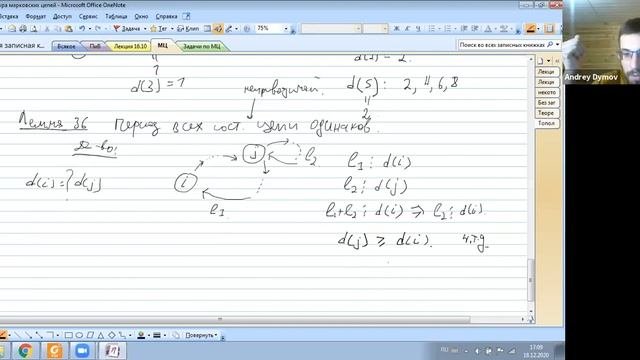 ура марковских цепей - Microsoft Office OneNote
Вставка Формат Доступ Сервис Справка
75%
Andrey Dymov
записная к...
Всякое
ПиВ
Лекция 16.10
МЦ
Задачи по МЦ
Поиск во всех записных книжках
Лекци
Лекци
некото
Без заг
Теоре
Топол
d(3) = 1
d(5): 2, 4, 6, 8
2
неприводимой
Лемма 36 Период всех сост. цепи одинаков.
Д-во:
d(i) =? d(j)
i
j
l2
l1
l1 ⋮ d(i)
l2 ⋮ d(j)
l1+l2 ⋮ d(i) ⇒ l2 ⋮ d(i).
d(j) ≥ d(i). ч.т.д.
Повернуть
RU
17:09
18.12.2020